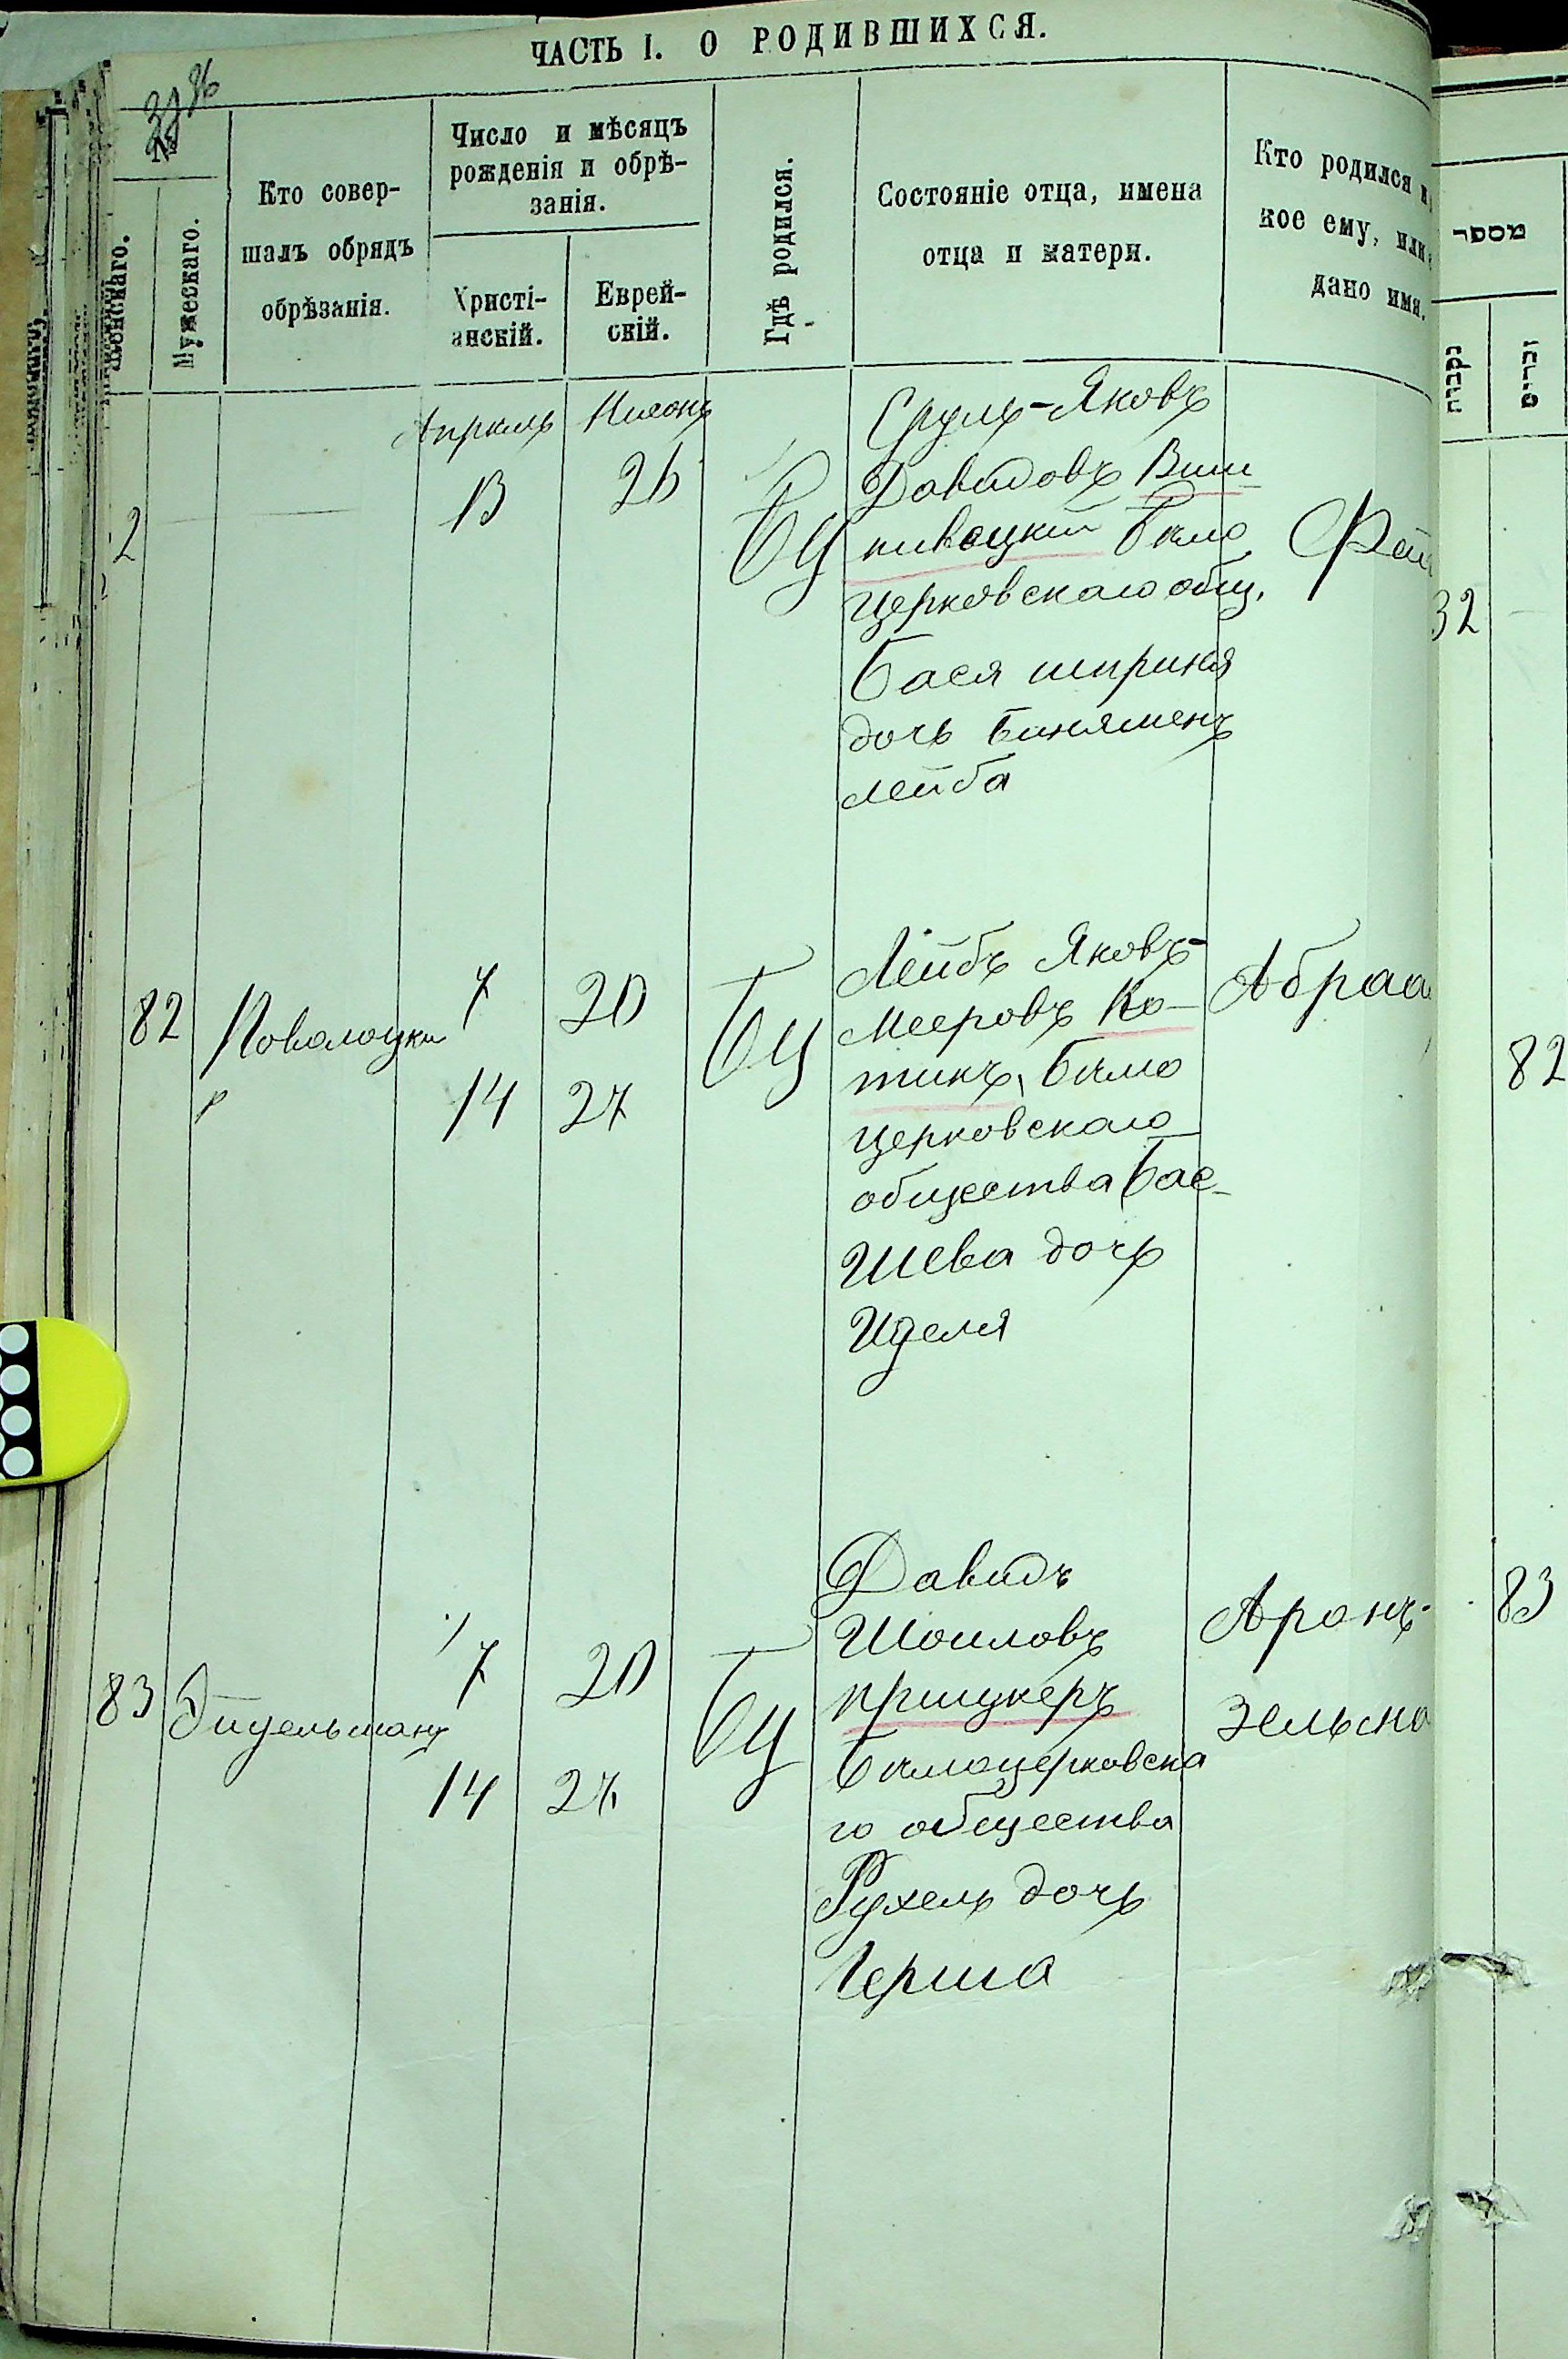 ЧАСТЬ I. О РОДИВШИХСЯ.
36
№
Женскаго.
Мужескаго.
Кто совер-
шалъ обрядъ
обрѣзанія.
Число и мѣсяцъ
рожденія и обрѣ-
занія.
Христі-
анскій.
Еврей-
скій.
Гдѣ родился.
Состояніе отца, имена
отца и матери.
Кто родился и
кое ему, или
дано имя.
מספר
נקבות
זכרים
Апрѣль Нисонъ
2
13
26
БЦ
Сруль-Яковъ
Давидовъ Виш
нивецкій Бѣло
церковскаго общ.
Бася
дочь Биняменъ
Лейба
Фей
32
82
Поволоцки
7
20
14
27
БЦ
Лейбъ Яковъ-
Мееровъ Ко-
тикъ, Бѣло
церковскаго
общества Бас-
Шева дочь
Иделя
Абраа
82
83
Эйдельманъ
7
20
14
27
БЦ
Давидъ
Шоиловъ
Прицкеръ
Бѣлоцерковска
го общества
Рухель дочь
Герша
Аронъ-
Зельма
83